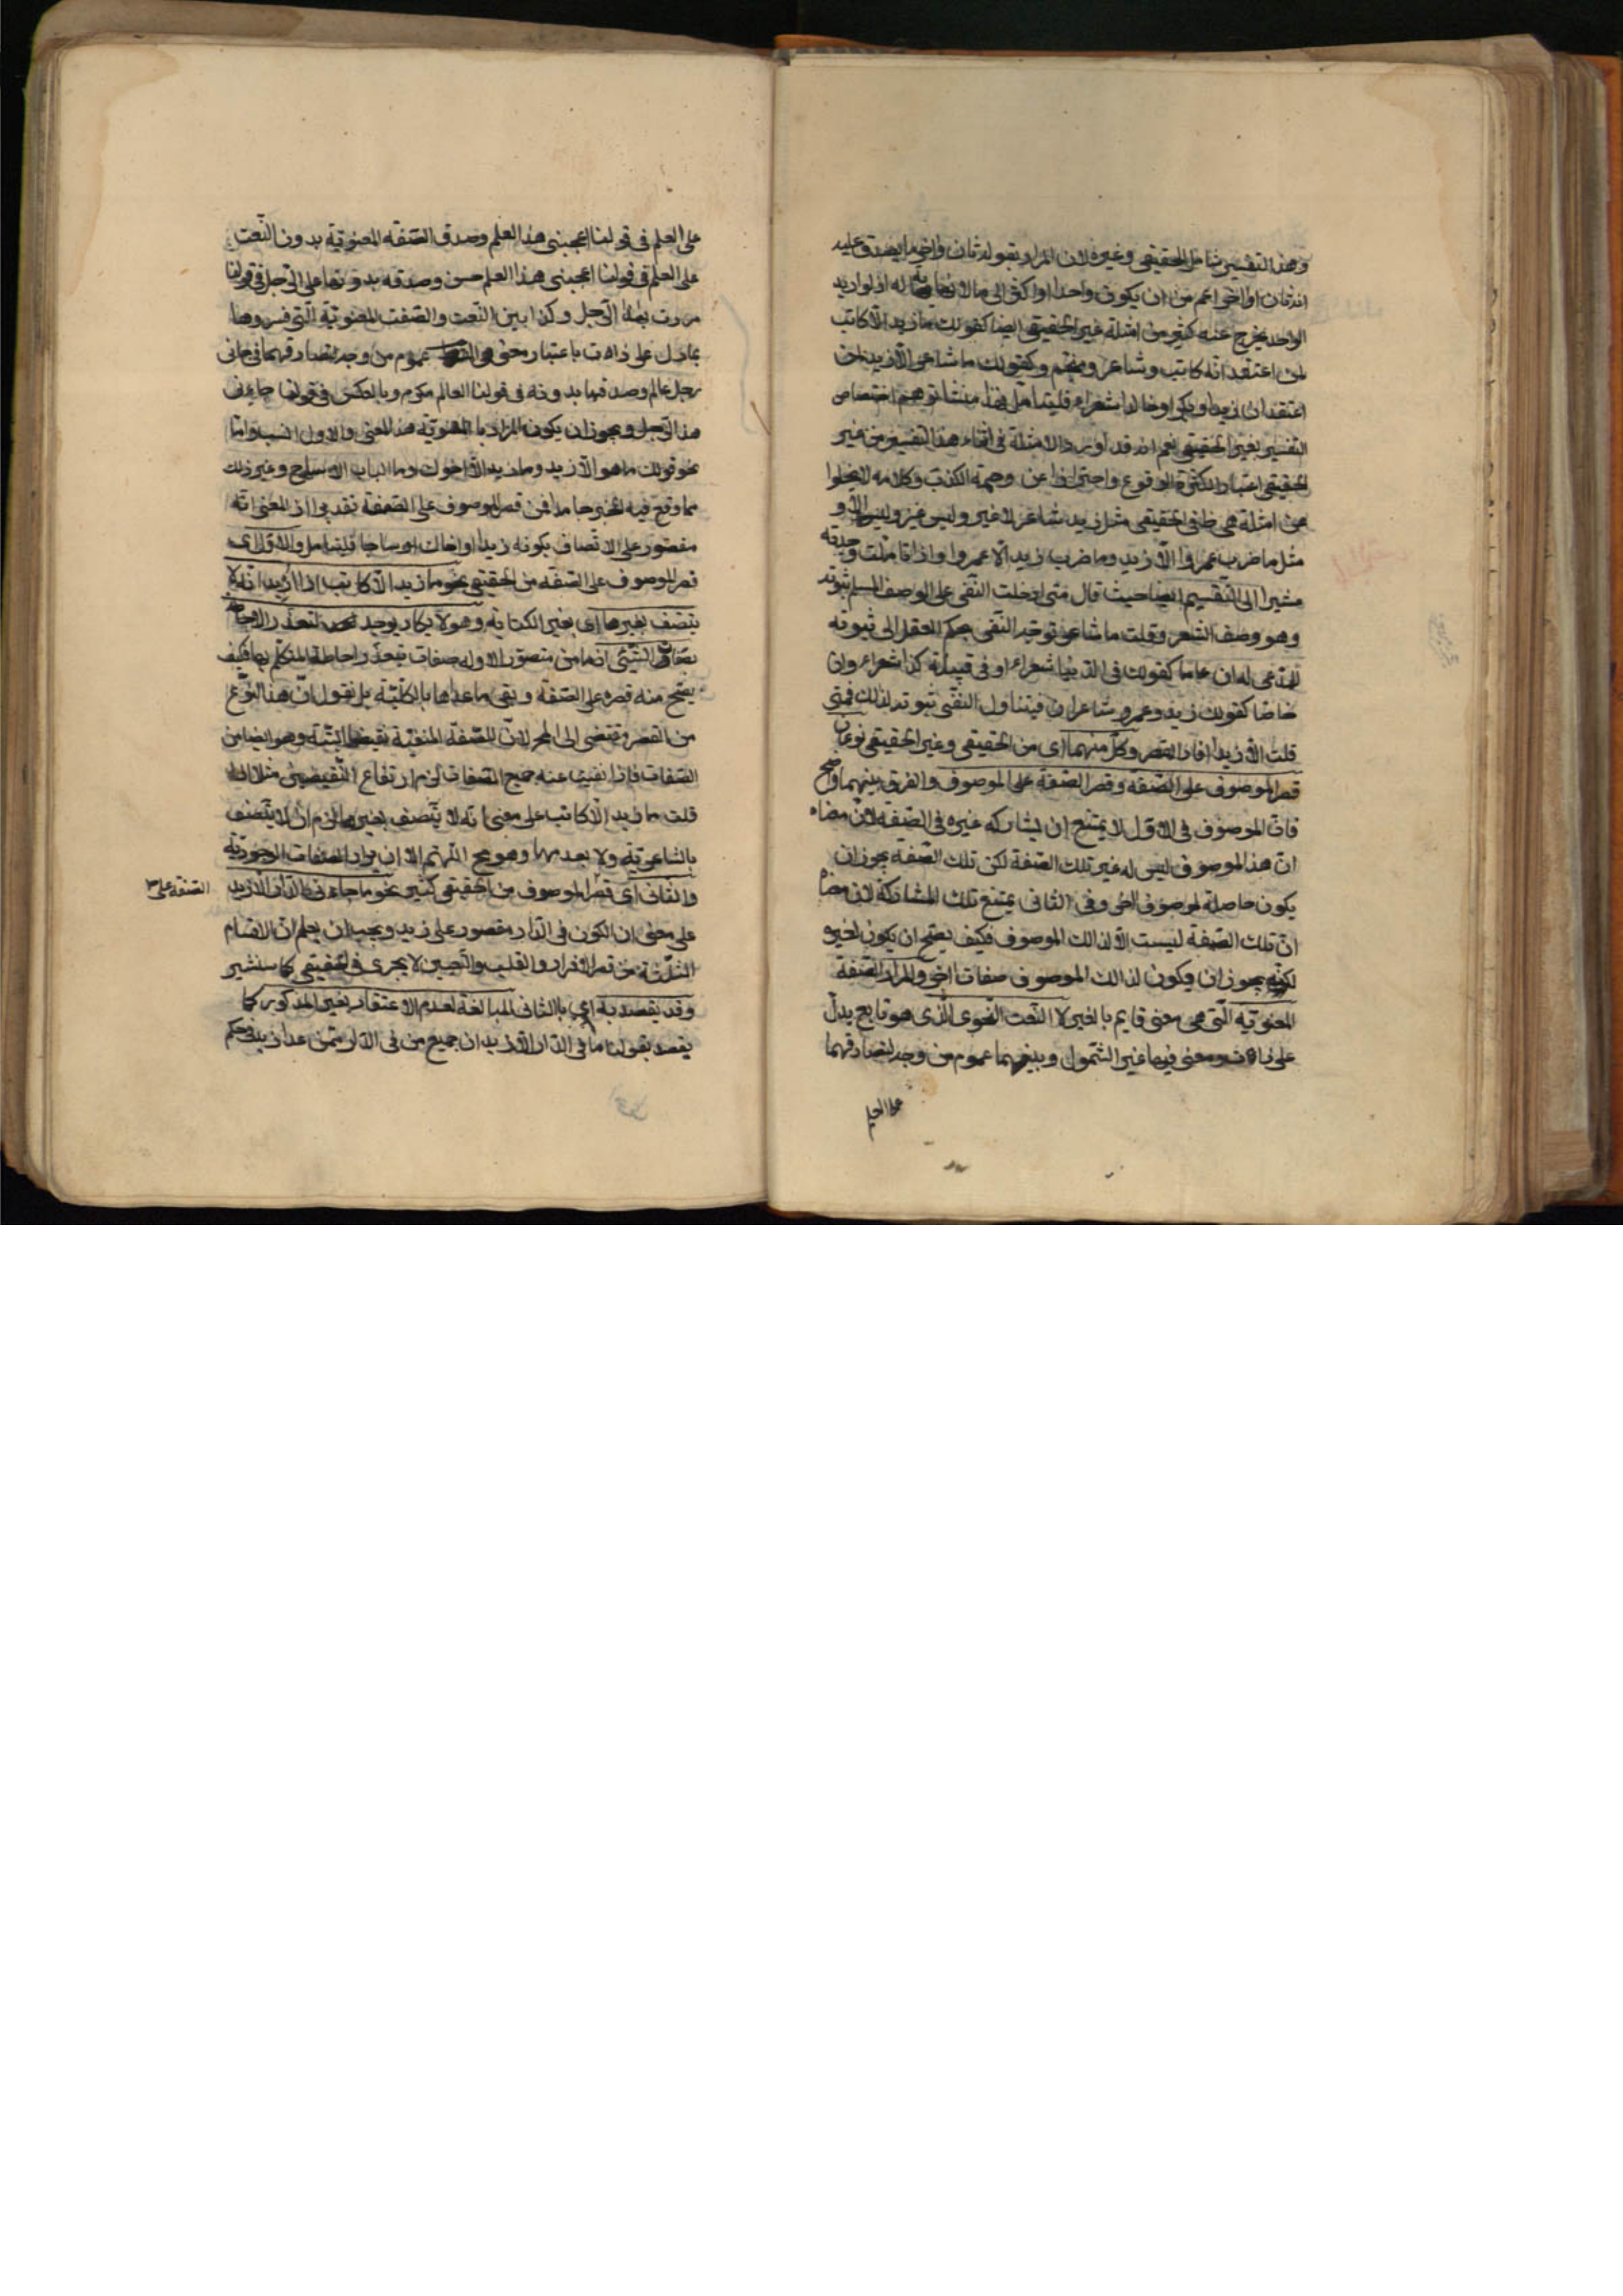 وهذا التفسير شامل للحقيقي وغيره لان المراد بقوله ثان واخر ما يصدق عليه
انه ثان او اخر اعم من ان يكون واحدا او اكثر الى ما لا نهاية له اذ لو اريد
الواحد يخرج عنه كثير من امثلة غير الحقيقي ايضا كقولك ما زيد الا كاتب
لمن اعتقد انه كاتب وشاعر ومنجم وكقولك ما شاعر الا زيد لمن
اعتقد ان زيدا وبكرا وخالدا شعراء فليتامل فهذا منشا توهم اختصاص
التفسير بغير الحقيقي نعم انه قد اورد الامثلة في اثناء هذا التفسير من غير
الحقيقي اعتبارا لكثرة الوقوع واحترازا عن وصمة الكذب وكلامه لا يخلوا
عن امثلة هي ظاهر الحقيقي مثل زيد شاعر لا غير وليس غير وليس الا و
مثل ما ضرب عمروا الا زيد وما ضرب زيد الا عمروا واذا تاملت وجدته
مشيرا الى التقسيم ايضا حيث قال متى ادخلت النفي على الوصف المسلم ثبوته
وهو وصف الشعر وقلت ما شاعر توجه النفي بحكم العقل الى ثبوته
للمدعى له ان عاما كقولك في الدنيا شعراء او في قبيلة كذا شعراء وان
خاصا كقولك زيد وعمرو شاعران فيتناول النفي ثبوته لذلك فمتى
قلت الا زيد افاد القصر وكل منهما اى من الحقيقي وغير الحقيقي نوعان
قصر الموصوف على الصفة وقصر الصفة على الموصوف والفرق بينهما واضح
فان الموصوف في الاول لا يمتنع ان يشاركه غيره في الصفة لان معناه
ان هذا الموصوف ليس له غير تلك الصفة لكن تلك الصفة يجوز ان
يكون حاصلة لموصوف اخر وفي الثاني يمتنع تلك المشاركة لان معناه
ان تلك الصفة ليست الا لذالك الموصوف فكيف يصح ان يكون لغيره
لكنه يجوز ان يكون لذالك الموصوف صفات اخر والمراد الصفة
المعنوية التي هي معنى قايم بالغير لا النعت النحوى الذى هو تابع يدل
على ذات ومعنى فيها غير الشمول وبينهما عموم من وجه لتصادقهما
على العلم في قولنا اعجبنى هذا العلم وصدق الصفة المعنوية بدون النعت
على العلم في قولنا اعجبنى هذا العلم حسن وصدقه بدونها على الرجل في قولنا
مررت بهذا الرجل وكذا بين النعت والصفة المعنوية التي فسروها
بما دل على ذات باعتبار معنى هو المقصود عموم من وجه لتصادقهما في جاءنى
رجل عالم وصدقهما بدونه في قولنا العالم مكرم وبالعكس في قولنا جاءنى
هذا الرجل ويجوز ان يكون المراد بالمعنوية هذا المعنى والاول انسب واما
نحو قولك ما هو الا زيد وما زيد الا اخوك وما الباب الا ساج وغير ذلك
مما وقع فيه الخبر جامدا فمن قصر الموصوف على الصفة تقديرا اذ المعنى انه
مقصور على الاتصاف بكونه زيدا او اخاك او ساجا فليتامل والاول اى
قصر الموصوف على الصفة من الحقيقي نحو ما زيد الا كاتب اذا اريد انه لا
يتصف بغيرها اى بغير الكتابة وهو لا يكاد يوجد لتعذر الاحاطة
بصفات الشيئ اذ ما من متصور الا وله صفات يتعذر احاطة المتكلم بها فكيف
يصح منه قصره على الصفة ونفي ما عداها بالكلية بل نقول ان هذا النوع
من القصر مفضى الى المحال لان للصفة المنفية نقيضا البتة وهو ايضا من
الصفات فاذا نفيت عنه جميع الصفات لزم ارتفاع النقيضين مثلا اذا
قلت ما زيد الا كاتب على معنى انه لا يتصف بغيرها لزم ان لا يتصف
بالشاعرية ولا بعدمها وهو مح اللهم الا ان يراد الصفات الوجودية
والثانى اى قصر الموصوف من الحقيقي كثير نحو ما جاء في الدار الا زيد
الصفة على
على معنى ان الكون في الدار مقصور على زيد ويجب ان يعلم ان الاقسام
الثلثة من قصر الافراد والقلب والتعيين لا يجرى في الحقيقي كما سنشير
وقد يقصد به اى بالثانى المبالغة لعدم الاعتداد بغير المذكور كما
يقصد بقولنا ما في الدار الا زيد ان جميع من في الدار ممن عدا زيد في حكم